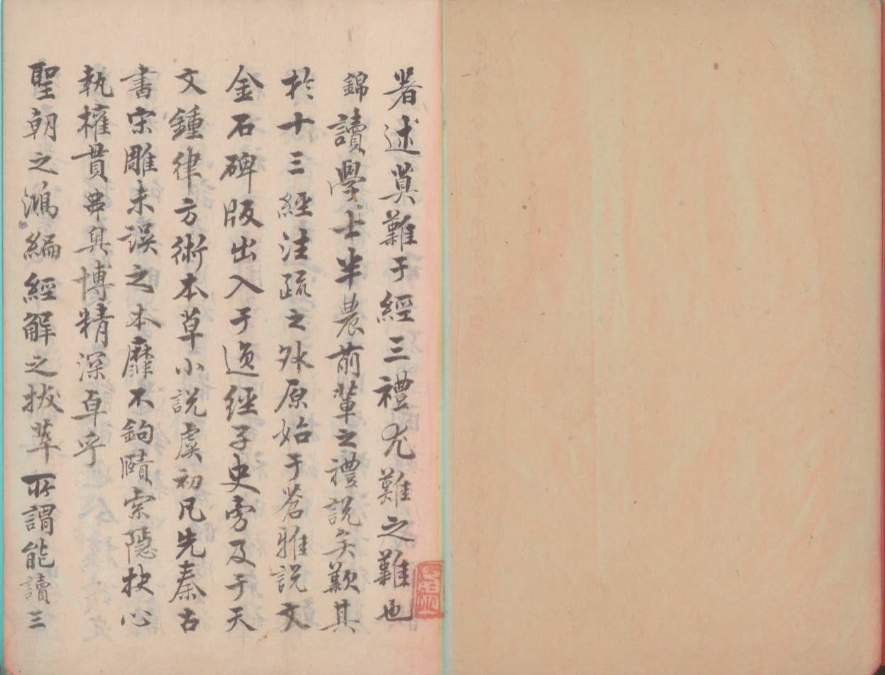 著述莫難于經三禮尤難之難也
錦讀學士半農前輩之禮說矣歎其
於十三經注疏之外原始于蒼雅說文
金石碑版出入于逸經子史旁及于天
文鍾律方術本草小說虞初凡先秦古
書宋雕未誤之本靡不鉤賾索隱抉心
執權貫弗奧博精深卓乎
聖朝之鴻編經解之拔萃所謂能讀三